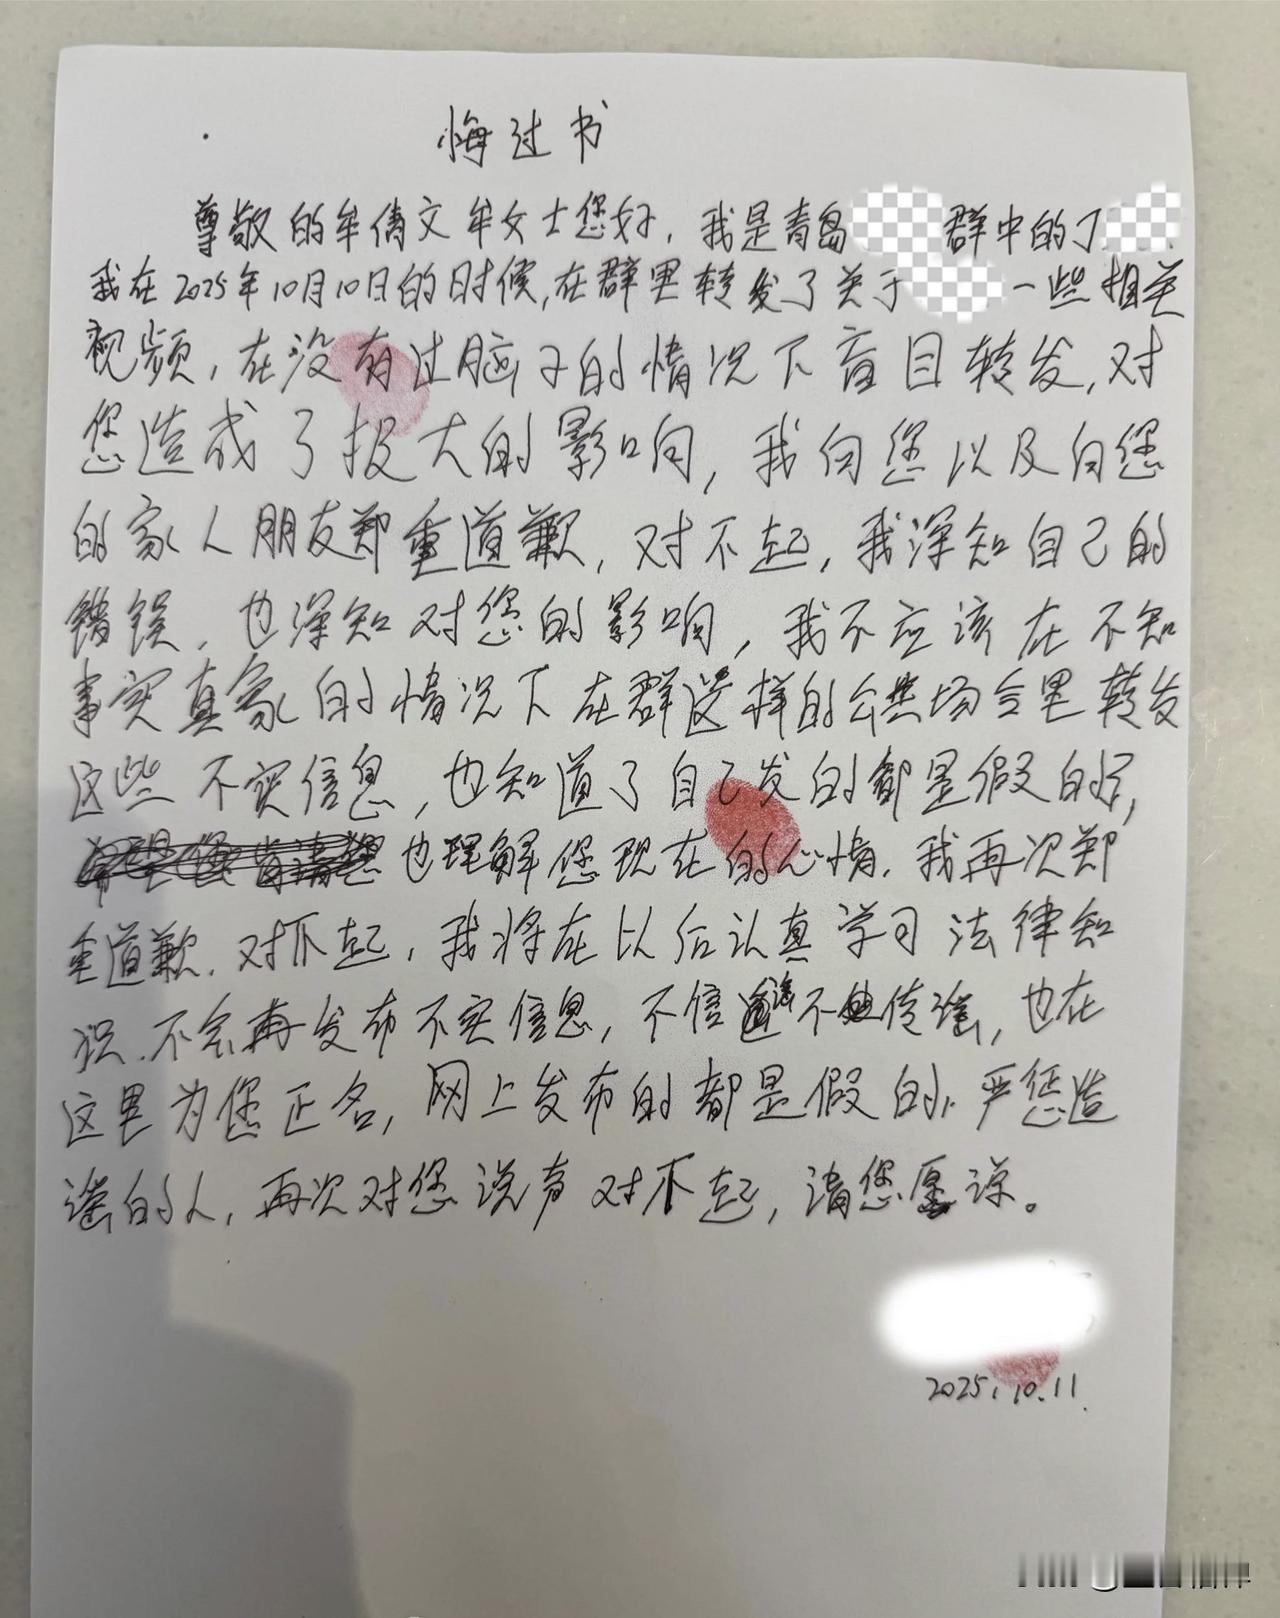 悔过书
尊敬的牟倩文牟女士您好，我是青岛 群中的丁
我在2025年10月10日的时候，在群里转发了关于 一些相关
视频，在没有过脑子的情况下盲目转发，对
您造成了极大的影响，我向您以及向您
的家人朋友郑重道歉，对不起，我深知自己的
错误，也深知对您的影响，我不应该在不知
事实真象的情况下在群这样的公共场合里转发
这些不实信息，也知道了自己发的都是假的，
也理解您现在的心情.我再次郑
重道歉.对不起，我将在以后认真学习法律知
识.不会再发布不实信息，不信谣不传谣，也在
这里为您正名，网上发布的都是假的，严惩造
谣的人，再次对您说声对不起，请您原谅。
2025.10.11.